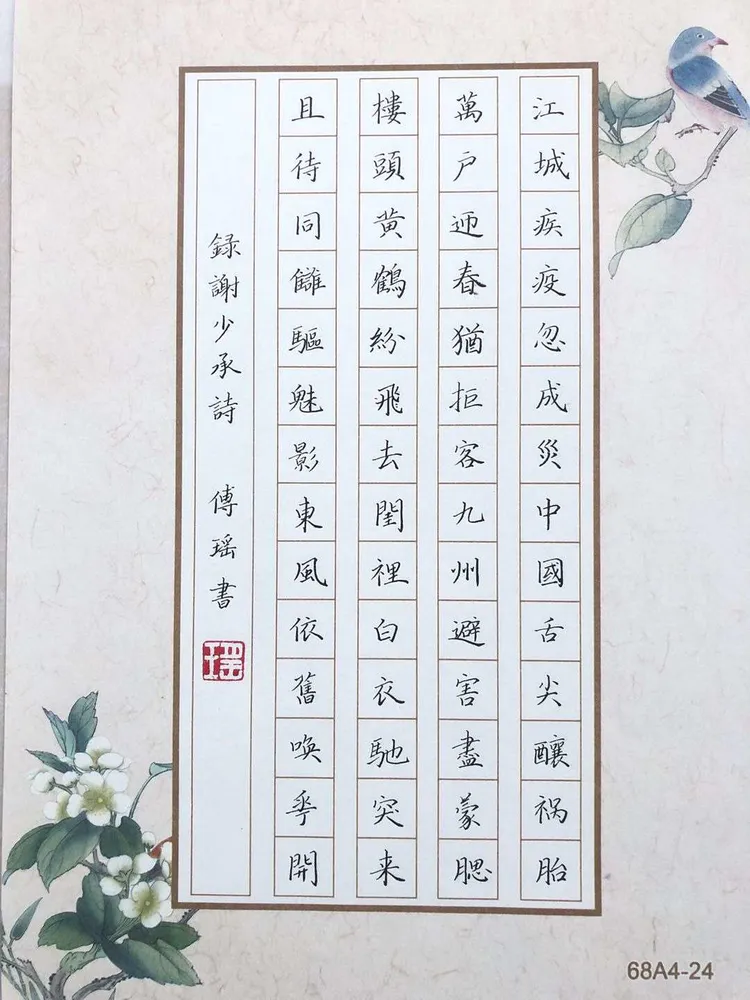 江城疾疫忽成災中國舌尖釀祸胎
萬户迎春猶拒客九州避害盡蒙腮
樓頭黄鶴紛飛去閨裡白衣馳突来
且待同讎驅魅影東風依舊唤𠌶開
録謝少承詩 傅瑶書
瑶
68A4-24